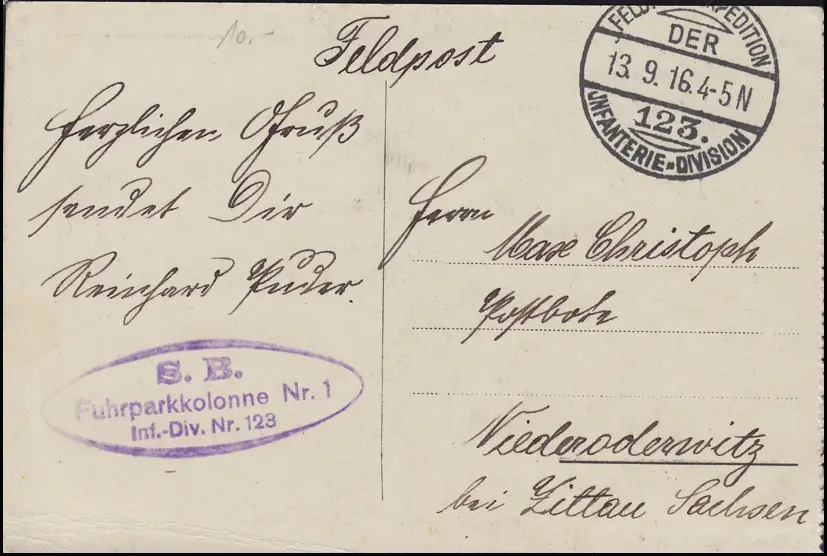 10.-
Feldpost
FELDPOSTEXPEDITION
DER
13. 9. 16. 4-5 N
123.
INFANTERIE-DIVISION
Herzlichen Gruß
sendet Dir
Reinhard Puder.
S. B.
Fuhrparkkolonne Nr. 1
Inf.-Div. Nr. 123
Herrn
Max Christoph
Postbote
Niederoderwitz
bei Zittau Sachsen